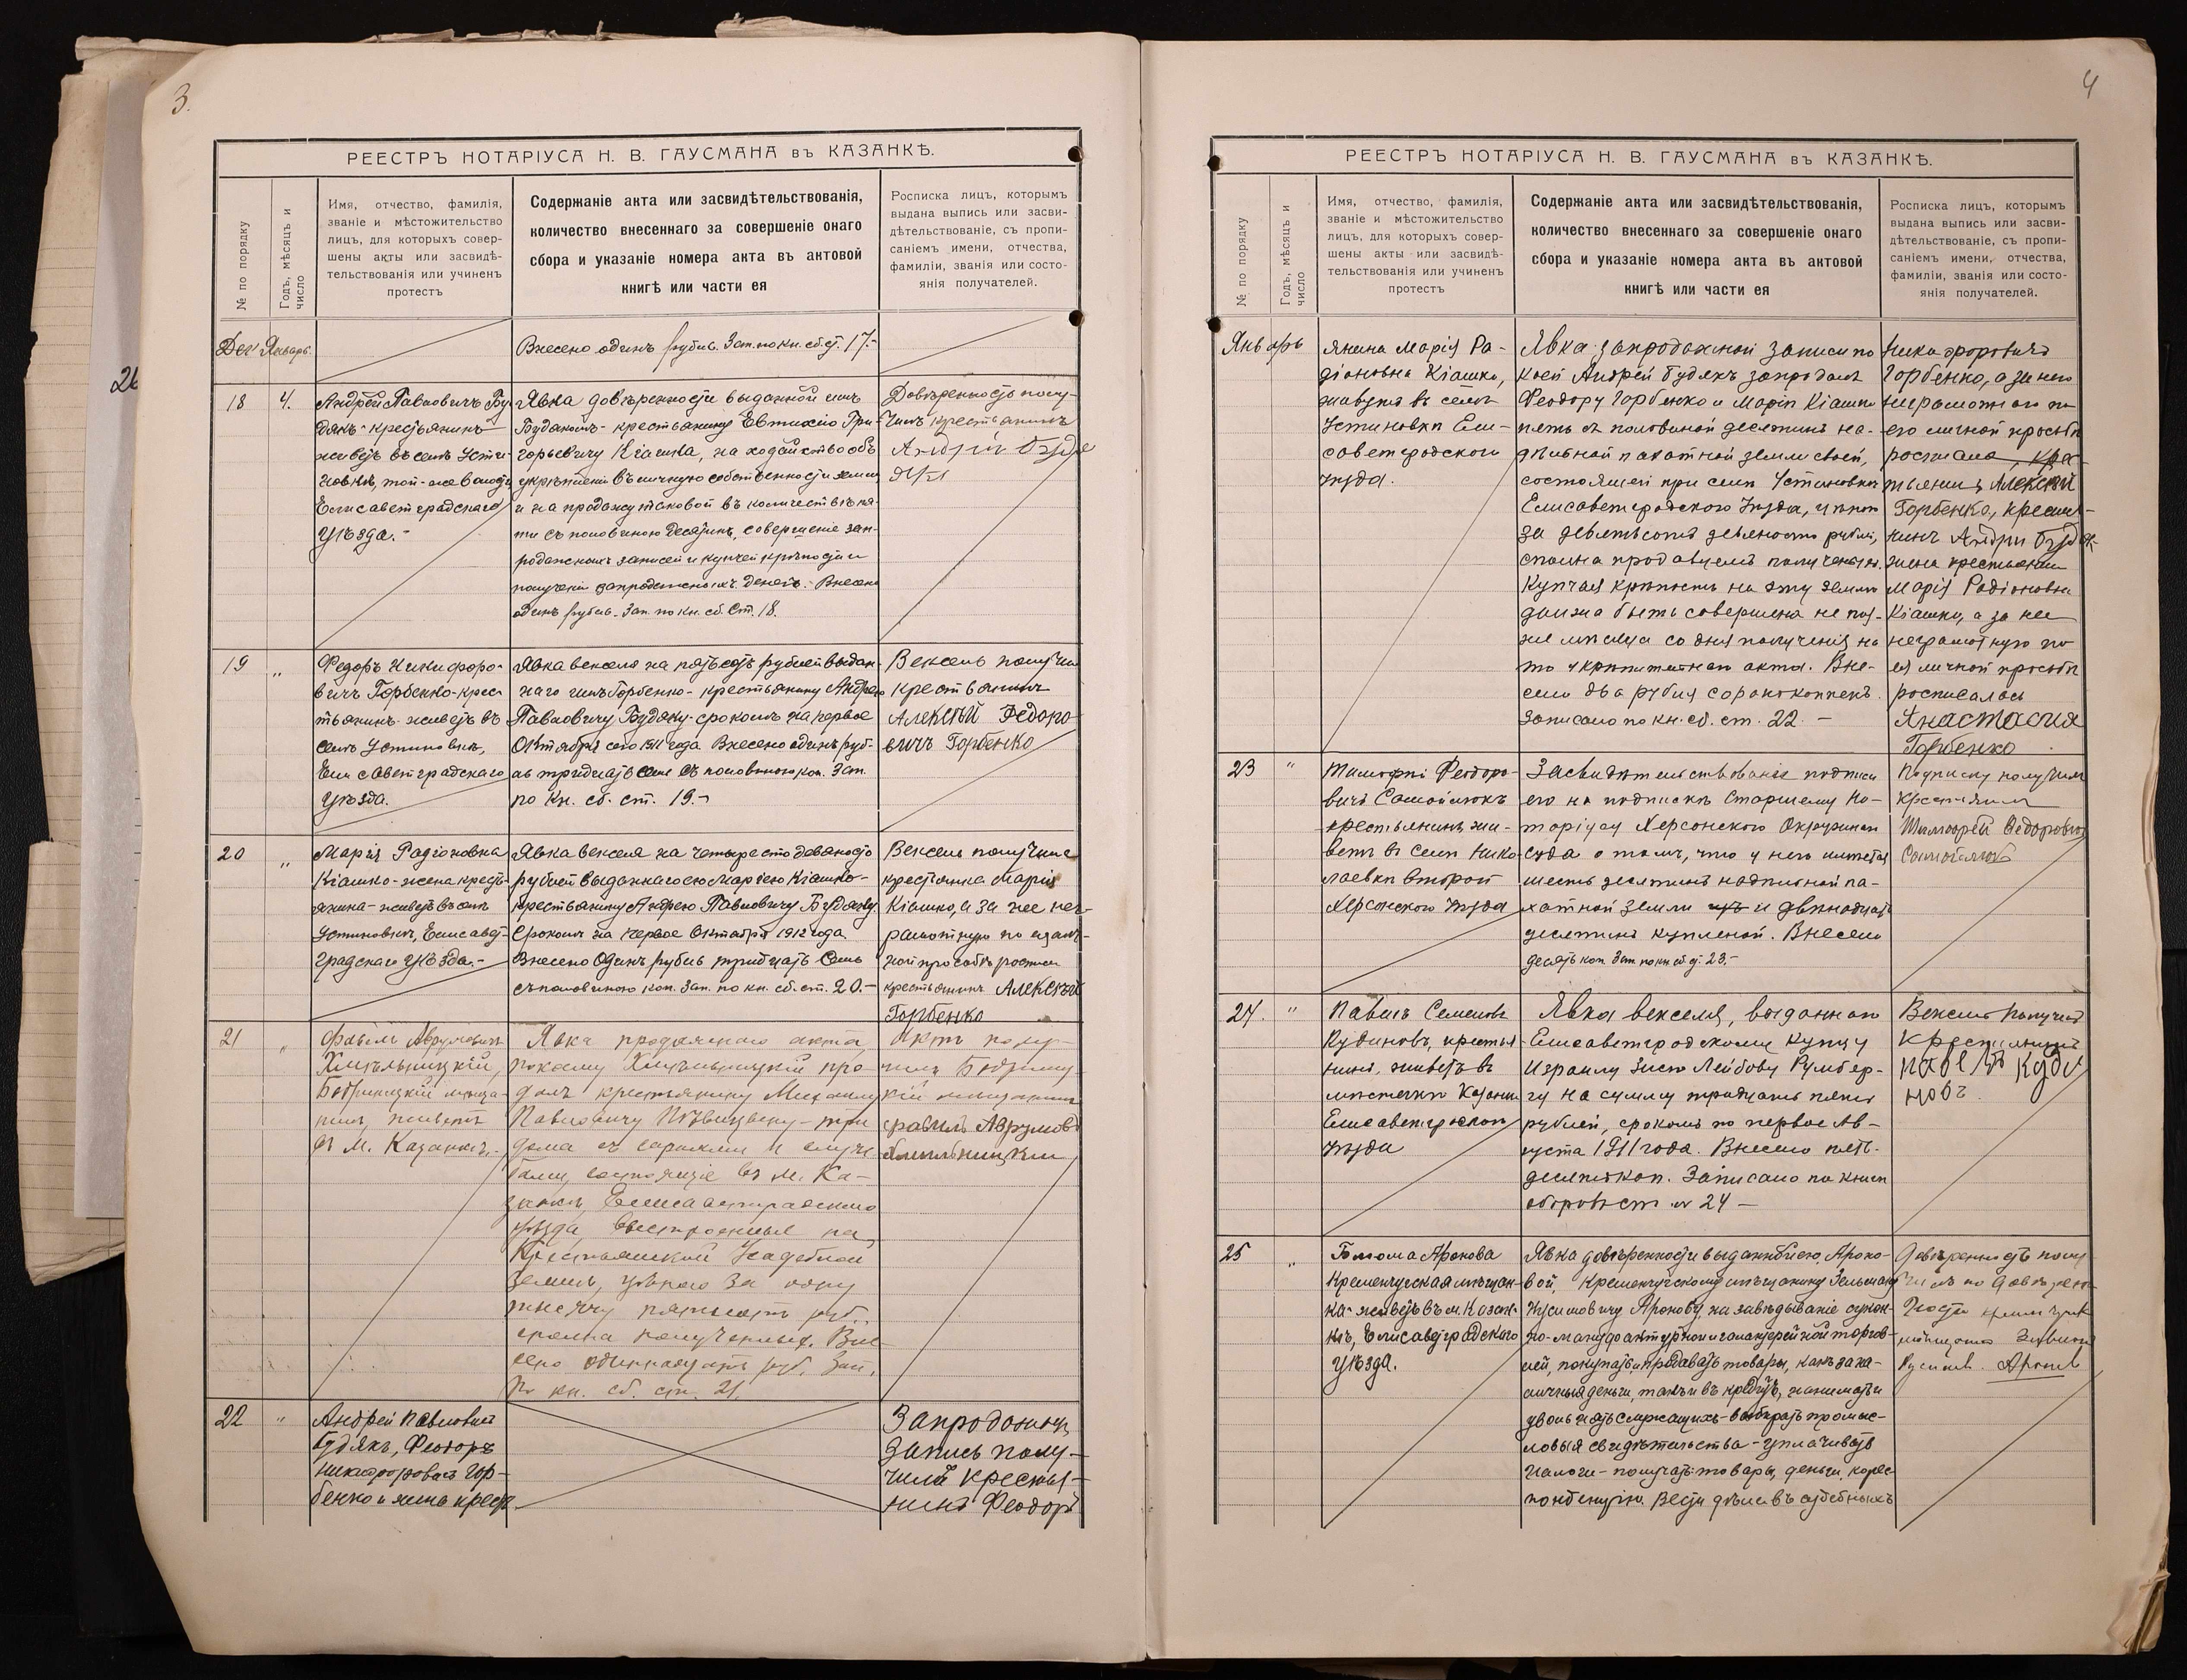 3.
РЕЕСТРЪ НОТАРІУСА Н. В. ГАУСМАНА въ КАЗАНКѢ.
№ по порядку
Годъ, мѣсяцъ и число
Имя, отчество, фамилія,
званіе и мѣстожительство
лицъ, для которыхъ совер-
шены акты или засвидѣ-
тельствованія или учиненъ
протестъ
Содержаніе акта или засвидѣтельствованія,
количество внесеннаго за совершеніе онаго
сбора и указаніе номера акта въ актовой
книгѣ или части ея
Росписка лицъ, которымъ
выдана выпись или засви-
дѣтельствованіе, съ пропи-
саніемъ имени, отчества,
фамиліи, званія или состо-
янія получателей.
Январь.
Внесено одинъ рубль. Зап. по кн. сб. ст. 17.-
18
4.
Андрей Павловичъ Бу-
дякъ-крестьянинъ
живетъ въ селѣ Усти-
новкѣ, той-же волости
Елисаветградскаго
уѣзда.-
Явка довѣренности выданной имъ
Будякомъ-крестьянину Евтихію Гри-
горьевичу Кіашка, на ходатайство объ
укрѣпленіи въ личную собственность земли
и на продажу таковой въ количествѣ пя-
ти съ половиною десятинъ, совершеніе зап-
родажныхъ записей и купчей крѣпости и
полученіи запродажныхъ денегъ.- Внесено
одинъ рубль. Зап. по кн. сб. ст. 18.
Довѣренность полу-
чилъ крестьянинъ
Андрій Будя
19
"
Федоръ Никифоро-
вичъ Горбенко-крес-
тьянинъ-живетъ въ
селѣ Устиновкѣ,
Елисаветградскаго
уѣзда.
Явка векселя на пятьсотъ рублей выдан-
наго имъ Горбенко-крестьянину Андрею
Павловичу Будяку-срокомъ на первое
Октября сего 1911 года Внесено одинъ руб-
ль тридцать семь съ половиною коп. Зап.
по кн. сб. ст. 19.-
Вексель получилъ
крестьянинъ
Алексѣй Федоро
вичъ Горбенко
20
"
Марія Радіоновна
Кіашко-жена кресть-
янина-живетъ въ селѣ
Устиновкѣ, Елисавет-
градскаго уѣзда.-
Явка векселя на четыреста девяносто
рублей выданнаго ею Маріею Кіашко-
крестьянину Андрею Павловичу Будяку
Срокомъ на первое Октября 1912 года.
Внесено Одинъ рубль тридцать семь
съ половиною коп. Зап. по кн. сб. ст. 20.-
Вексель получила
крестьянка Марія
Кіашко, а за нее нег-
рамотную по ея лич-
ной просьбѣ росписался
крестьянинъ Алексѣй
Горбенко
21
"
Фавель Аврумовичъ
Хмѣльницкій,
Бобринецкій мѣща-
нинъ, живетъ
въ м. Казанкѣ.-
Явка продажнаго акта,
по коему Хмѣльницкій про-
далъ крестьянину Михаилу
Павловичу - три
дома съ сараями и служ-
бами, состоящіе въ м. Ка-
занкѣ, Елисаветградскаго
уѣзда выстроенные на
Крестьянской Усадебной
земли, цѣною за одну
тысячу пятьсотъ руб.
сполна полученныхъ. Вне-
сено одиннадцать руб. Зап.
по кн. сб. ст. 21.
Актъ полу-
чилъ Бобринец-
кій мѣщанинъ
Фавель Аврумовъ
Хмѣльницкій
22
"
Андрей Павловичъ
Будякъ, Феодоръ
Никифоровичъ Гор-
бенко и жена крест-
Запродажную
запись полу-
чили крестья-
нинъ Феодоръ
4
РЕЕСТРЪ НОТАРІУСА Н. В. ГАУСМАНА въ КАЗАНКѢ.
№ по порядку
Годъ, мѣсяцъ и число
Имя, отчество, фамилія,
званіе и мѣстожительство
лицъ, для которыхъ совер-
шены акты или засвидѣ-
тельствованія или учиненъ
протестъ
Содержаніе акта или засвидѣтельствованія,
количество внесеннаго за совершеніе онаго
сбора и указаніе номера акта въ актовой
книгѣ или части ея
Росписка лицъ, которымъ
выдана выпись или засви-
дѣтельствованіе, съ пропи-
саніемъ имени, отчества,
фамиліи, званія или состо-
янія получателей.
Январь
янина Марія Ра-
діоновна Кіашко,
живутъ въ селѣ
Устиновкѣ Ели-
саветградскаго
уѣзда.
Явка запродажной записи по
коей Андрей Будякъ запродалъ
Феодору Горбенко и Маріи Кіашко
пять съ половиной десятинъ на-
дѣльной пахатной земли своей,
состоящей при селѣ Устиновкѣ
Елисаветградскаго уѣзда, цѣною
за девятьсотъ девяносто рублей,
сполна продавцемъ полученныхъ.
Купчая крѣпость на эту землю
должна быть совершена не поз-
же мѣсяца со дня полученія на
то укрѣпительнаго акта. Вне-
сено два рубля сорокъ копѣекъ.
Записано по кн. сб. ст. 22.-
Никифоровичъ
Горбенко, а за него
неграмотнаго по
его личной просьбѣ
росписался, крес-
тьянинъ Алексѣй
Горбенко, крестья-
нинъ Андри Будяк
жена крестьянина
Марія Радіоновна
Кіашко, а за нее
неграмотную по
ея личной просьбѣ
росписалась
Анастасия
Горбенко
23
"
Тимофей Феодоро-
вичъ Самойлюкъ
крестьянинъ жи-
ветъ въ селѣ Нико-
лаевкѣ второй
Херсонскаго уѣзда
Засвидѣтельствованіе подписи
его на подпискѣ Старшему Но-
таріусу Херсонскаго Окружнаго
суда о томъ, что у него имѣется
шесть десятинъ надѣльной па-
хатной земли и двѣнадцать
десятинъ купленой. Внесено
десять коп. Зап. по кн. сб. ст. 23.-
Подписку получилъ
крестьянинъ
Тимофей Федоровичъ
Самойлюкъ
24.
"
Павелъ Семеновъ
Кудиновъ, крестья-
нинъ, живетъ въ
мѣстечкѣ Казанкѣ
Елисаветградскаго
уѣзда
Явка векселя, выданнаго
Елисаветградскому купцу
Израилу Зисю Лейбову Румбер-
гу на сумму тридцать пять
рублей, срокомъ по первое Ав-
густа 1911 года. Внесено пять-
десять коп. Записано по книгѣ
сборовъ ст. № 24 —
Вексель получилъ
крестьянинъ
Павелъ Куди
новъ.
25
"
Аронова
Кременчугская мѣщан-
ка-живетъ въ м. Казан-
кѣ, Елисаветградскаго
уѣзда.
Явка довѣренности выданной ею, Ароно-
вой, Кременчугскому мѣщанину Зельману
Аронову, на завѣдываніе сукон-
но-мануфактурной и галантерейной торгов-
лей, покупать и продавать товары, какъ за на-
личныя деньги, такъ и въ кредитъ, нанимать и
увольнять служащихъ-выбирать промыс-
ловыя свидѣтельства-уплачивать
налоги-получать товары, деньги, корес-
понденцію. Вести дѣла въ судебныхъ
Довѣренность полу-
чилъ по довѣрен-
ности
мѣщанинъ
Аронов